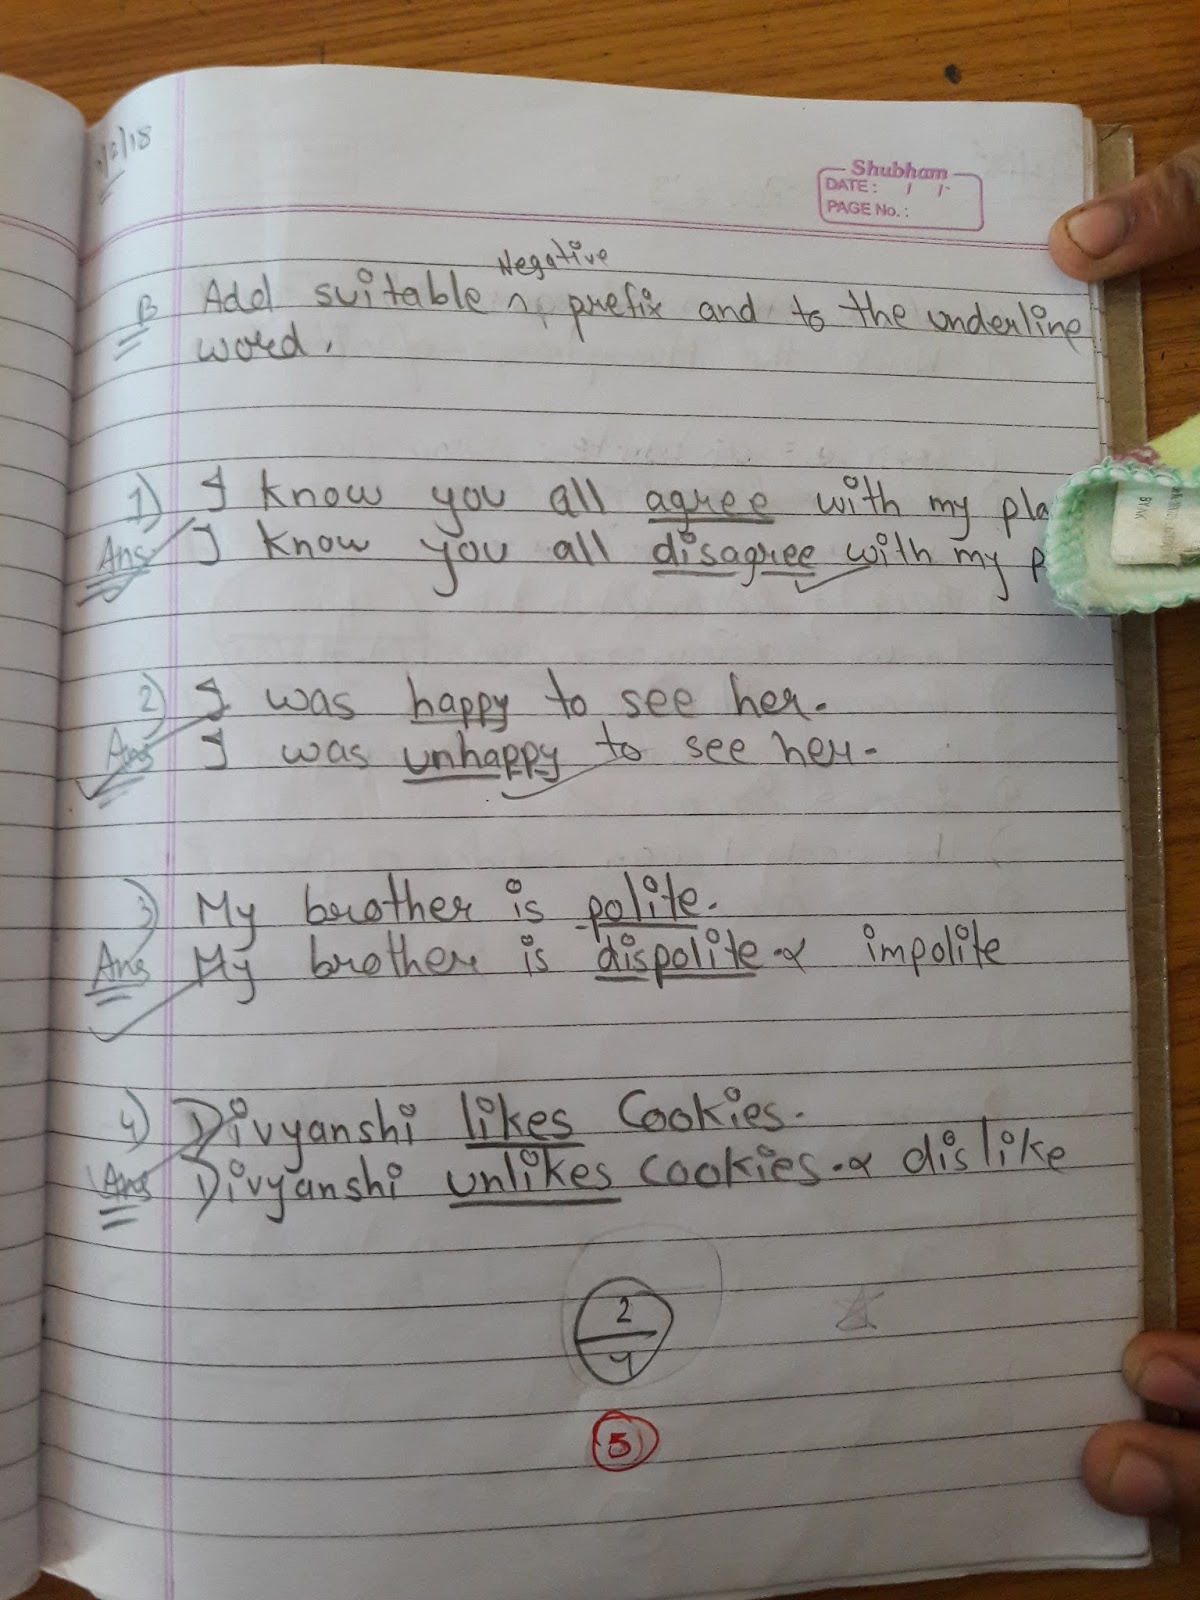 /2/18
Shubham
DATE: / /
PAGE No.:
Negative
B Add suitable ^ prefix and to the underline
word.
1) I know you all agree with my
Ans I know you all disagree with my
2) I was happy to see her.
Ans I was unhappy to see her.
3) My brother is polite.
Ans My brother is dispolite. impolite
4) Divyanshi likes Cookies.
Ans Divyanshi unlikes cookies. dislike
2
4
5